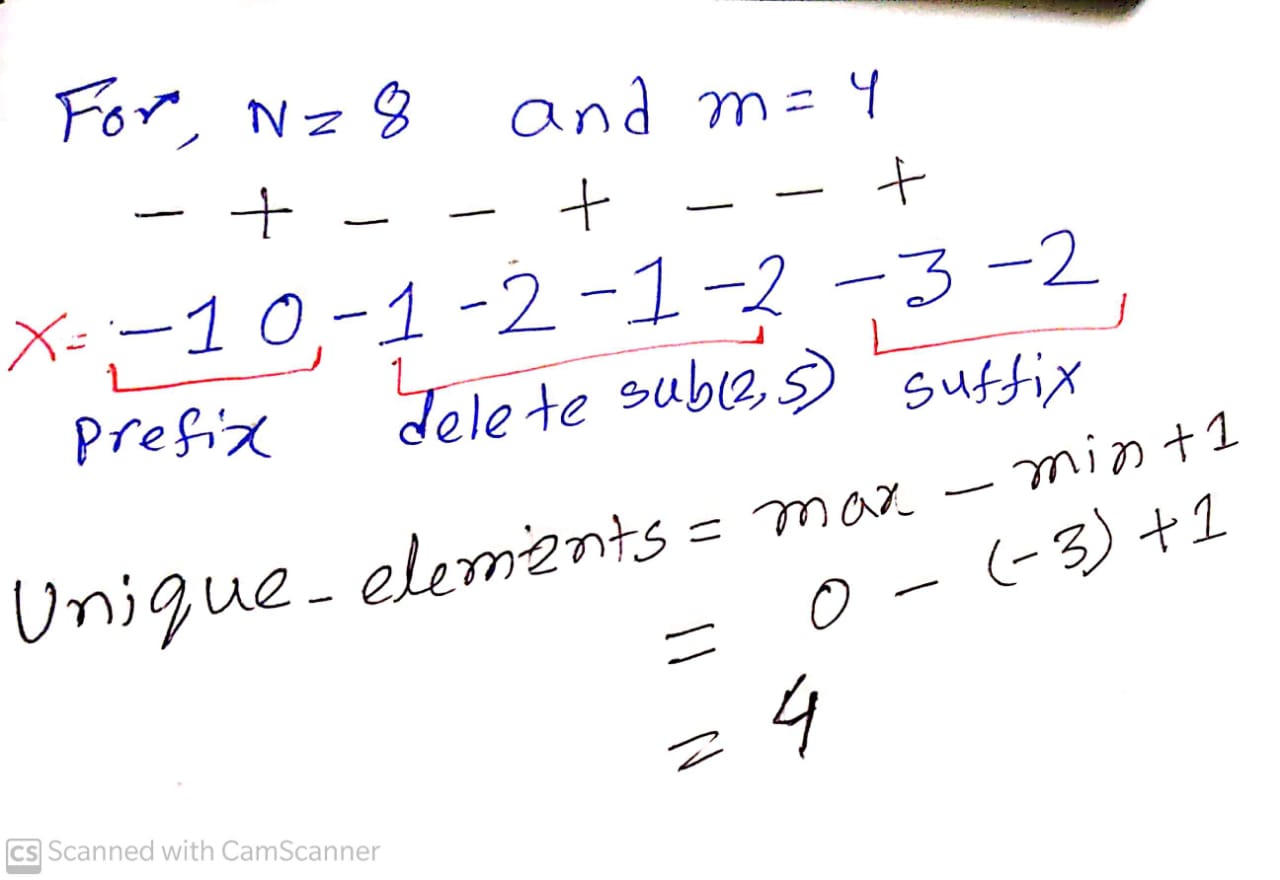 For, N = 8 and m = 4
- + - - + - - +
X = -1 0 -1 -2 -1 -2 -3 -2
prefix delete sub(2,5) suffix
Unique_elements = max - min + 1
= 0 - (-3) + 1
= 4
CS Scanned with CamScanner